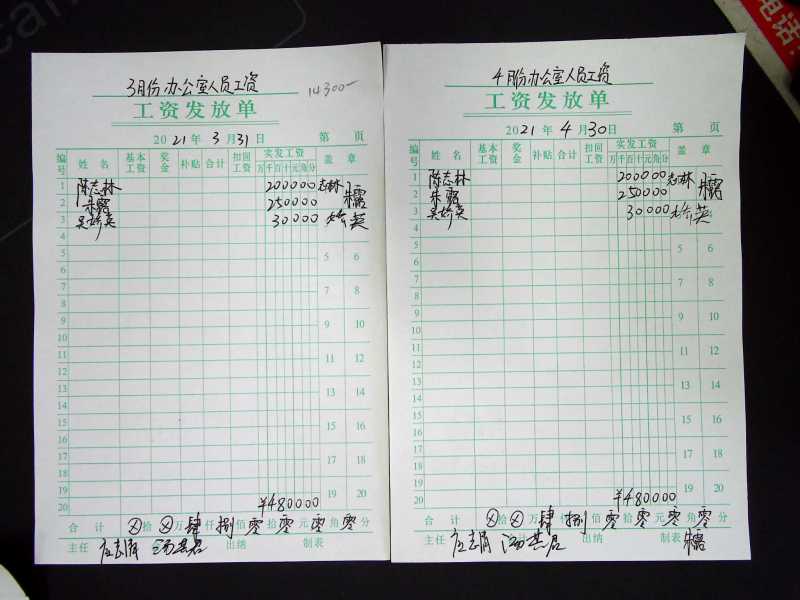 电话:
3月份办公室人员工资
14300-
工资发放单
2021年3月31日 第 页
编号 姓名 基本工资 奖金 补贴 合计 扣回工资 实发工资 盖章
万 千 百 十 元 角 分
1 陈志林 200000 志林
2 朱露 250000 朱露
3 吴娇英 30000
4
5 5 6
6
7 7 8
8
9 9 10
10
11 11 12
12
13 13 14
14
15 15 16
16
17 17 18
18
19 19 20
20 ¥480000
合计 ⊗拾⊗万肆仟捌佰零拾零元零角零分
主任 出纳 制表
4月份办公室人员工资
工资发放单
2021年4月30日 第 页
编号 姓名 基本工资 奖金 补贴 合计 扣回工资 实发工资 盖章
万 千 百 十 元 角 分
1 陈志林 200000 志林
2 朱露 250000 朱露
3 吴娇英 30000
4
5 5 6
6
7 7 8
8
9 9 10
10
11 11 12
12
13 13 14
14
15 15 16
16
17 17 18
18
19 19 20
20 ¥480000
合计 ⊗拾⊗万肆仟捌佰零拾零元零角零分
主任 出纳 制表 朱露